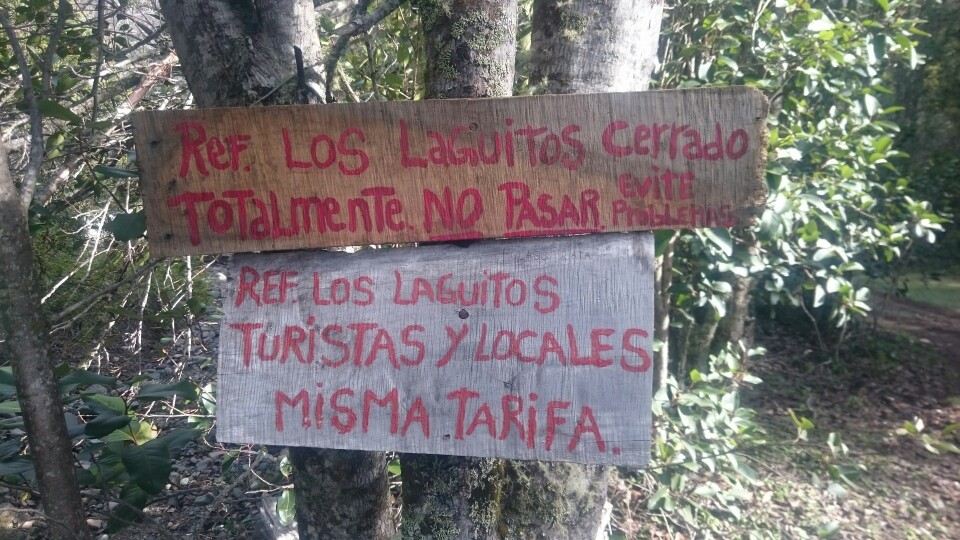 Ref. LOS LaGUiTOS Cerrado
TOTaLmenTe. NO PASAR EviTE Problemas
REF LOS LAGUiTOS
TURiSTAS Y LOCALES
MiSMA TARiFA.